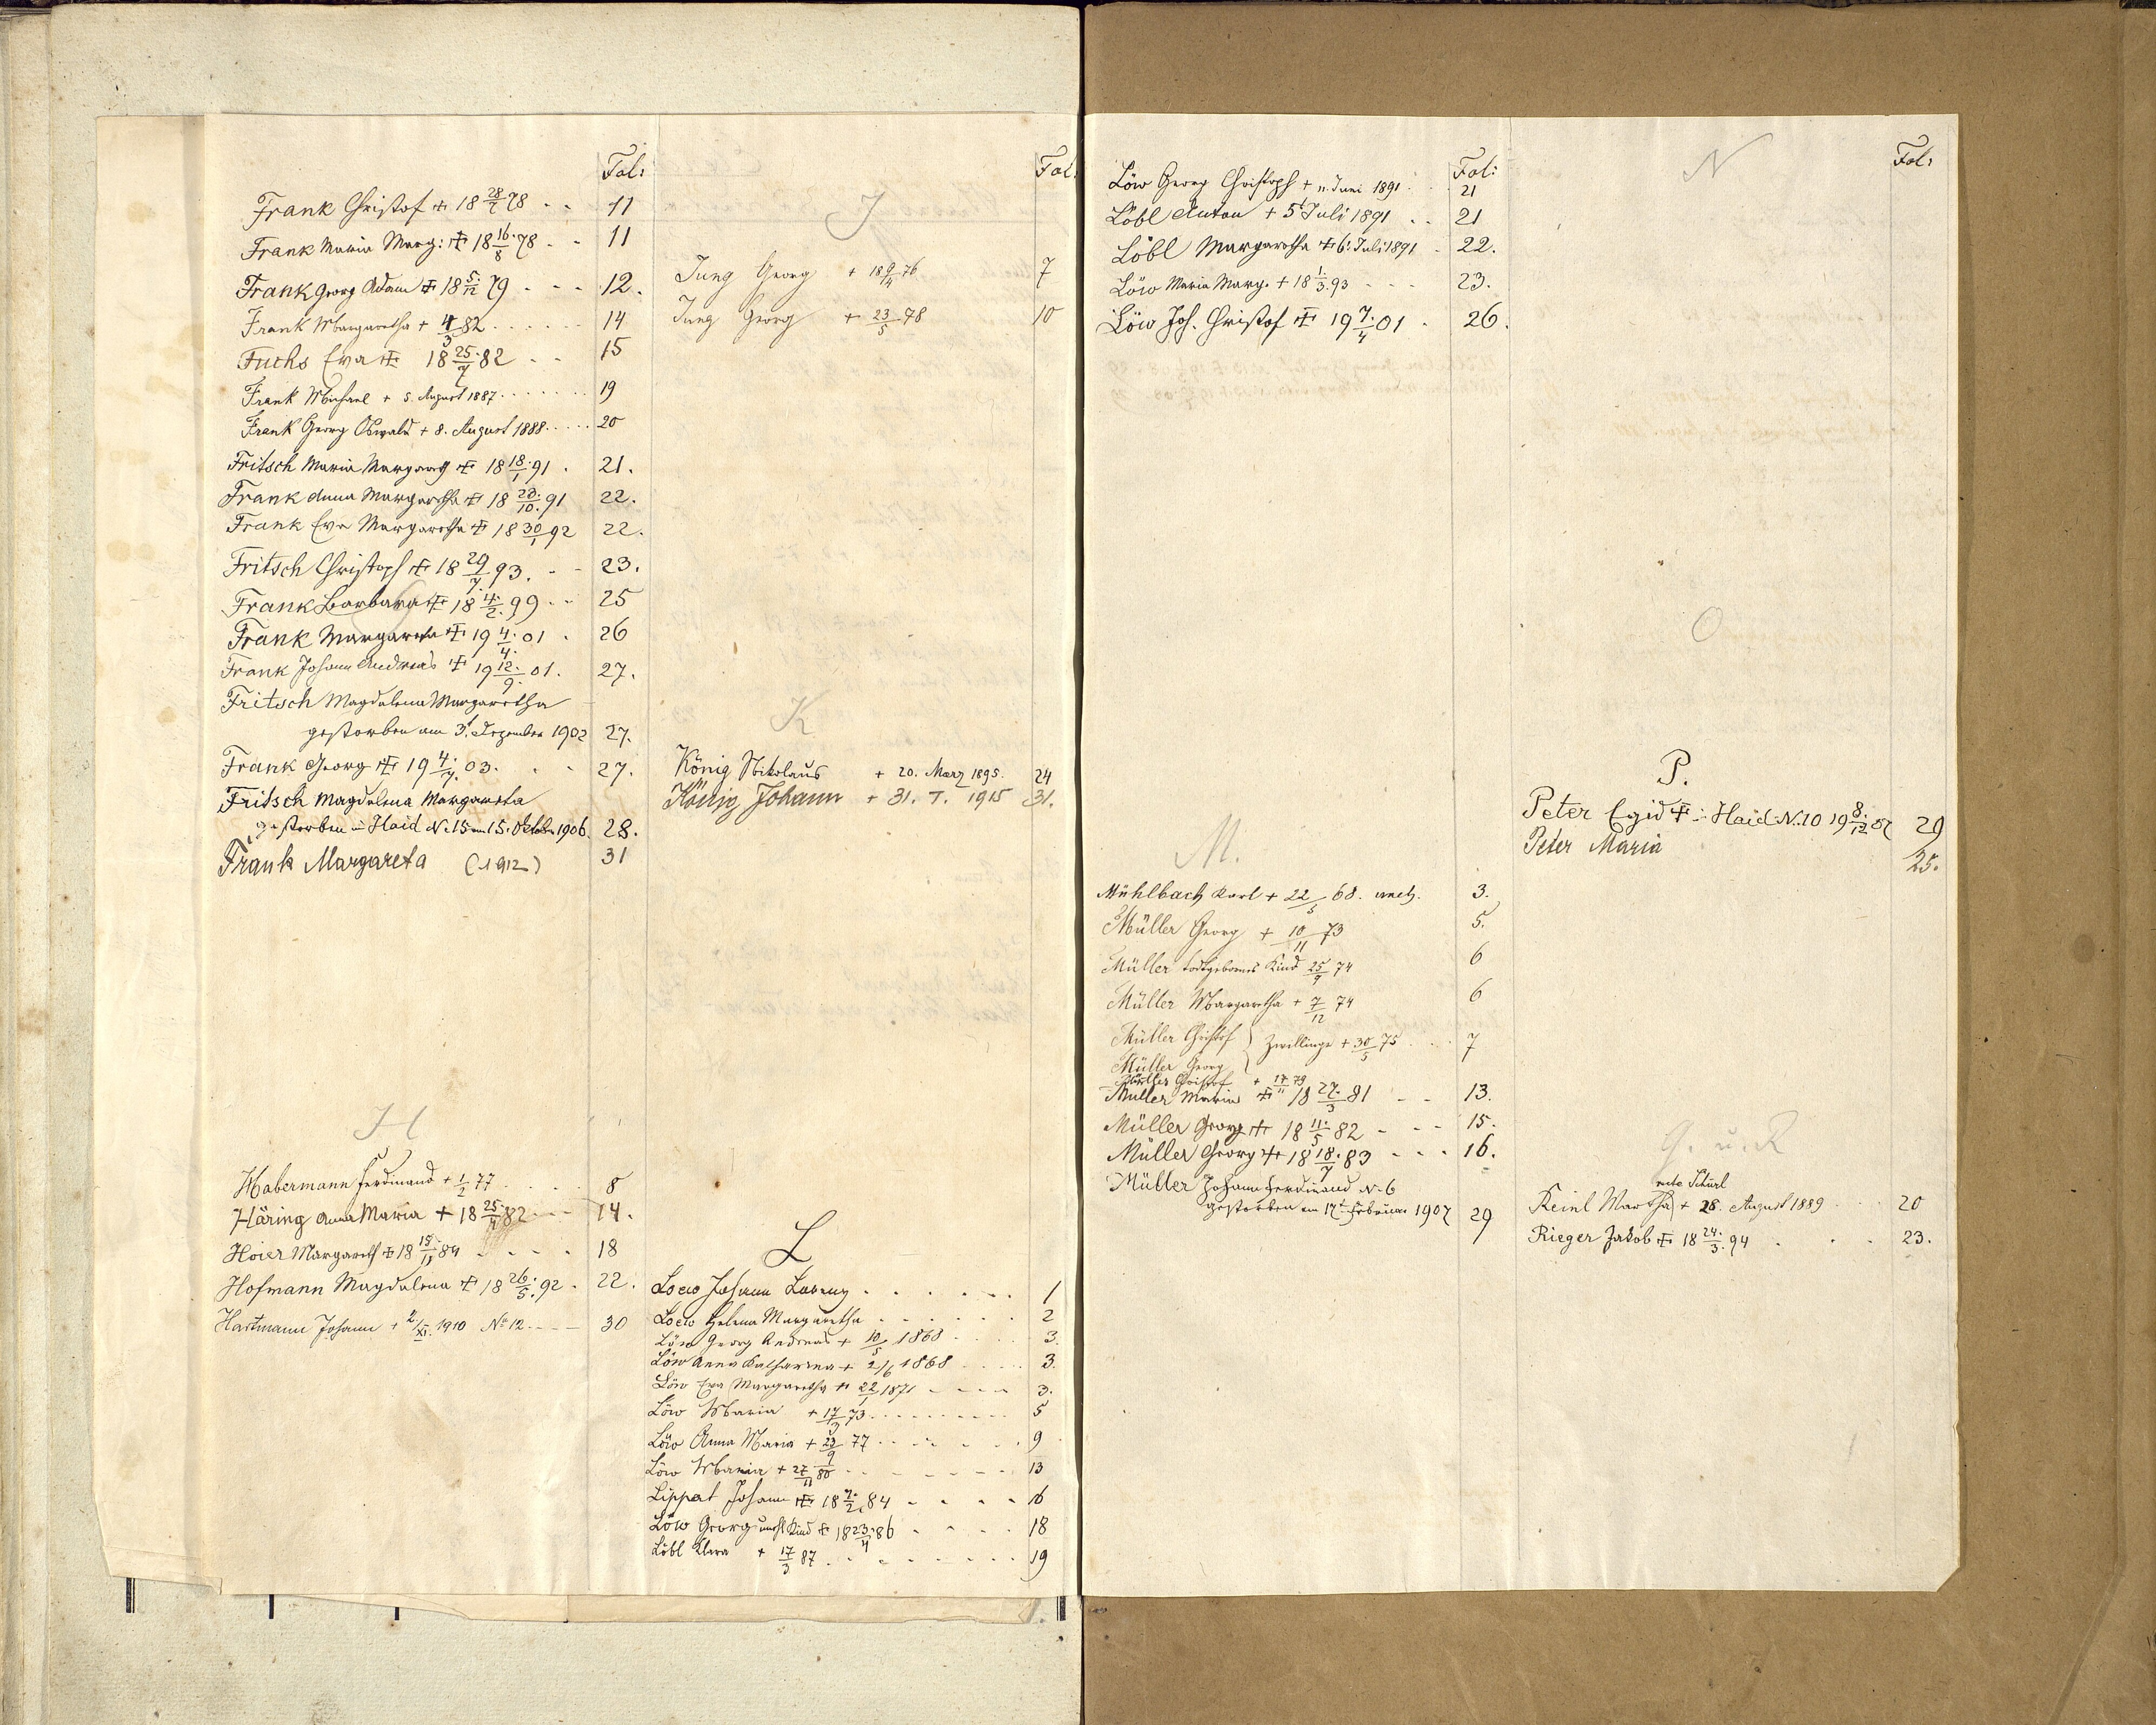 Fol:
Frank Christof + 18 28/7 78 . . 11
Frank Maria Marg: + 18 16./8 78 . . 11
Frank Georg Adam + 18 5./12 79 - - - 12.
Frank Margaretha + 4/3 82 . . . . . . 14
Fuchs Eva + 18 25./7 82 . . 15
Frank Michael + 5. August 1887 . . . . . . . 19
Frank Georg Oswald + 8. August 1888 . . . . . 20
Fritsch Maria Margareth + 18 18./1 91 . 21.
Frank Anna Margaretha + 18 /10. 91 22.
Frank Eva Margaretha + 18 30/1 92 22.
Fritsch Christoph + 18 29/7. 93. - - 23.
Frank Barbara + 18 4./2. 99 . . 25
Frank Margaretha + 19 4./4. 01 . 26
Frank Johann Andreas + 19 12./9. 01. 27.
Fritsch Magdalena Margaretha
gestorben am 3t. Dezember 1902 27.
Frank Georg + 19 4./7. 03. . . 27.
Fritsch Magdalena Margareta
gestorben in Haid N. 15 am 15. Oktober 1906. 28.
Frank Margareta (1912) 31
H
Habermann Ferdinand + 1/2 77 . . . . 8
Häring Anna Maria + 18 25./4 82 - - - 14.
Hoier Margareth + 18 15./11 84 - - - . 18
Hofmann Magdalena + 18 26./5. 92 . 22.
Hartmann Johann + 2/XI. 1910 No 12 . - - - 30
Fol:
J
Jung Georg + 18 9/4 76 7
Jung Georg + 23/5 78 10
K
König Nikolaus + 20. März 1895. 24
König Johann + 31. 7. 1915 31.
L
Loew Johann Lorenz . . . . . . 1
Loew Helena Margaretha . . . . . . 2
Löw Georg Andreas + 10/5 1868 . . . . 3.
Löw Anna Katharina + 2/6 1868 . . . . . 3.
Löw Eva Margaretha + 22/1 1871 - - - - 3.
Löw Maria + 17/3 73 . . . . . . . . . 5
Löw Anna Maria + 23/9 77 . . . . . . . 9
Löw Maria + 27/11 80 . . . . . . . 13
Lippert Johann + 18 7./2. 84 - . . . 16
Löw Georg unehl. Kind + 18 23./4 86 - . . . 18
Löbl Klara + 17/3 87 . . . . . . . . 19
Fol:
Löw Georg Christoph + 11. Juni 1891 . . 21
Löbl Anton + 5t Juli 1891 . . 21
Löbl Margaretha + 6t. Juli 1891 - 22.
Löw Maria Marg. + 18 1./3. 93 - - - 23.
Löw Joh. Christof + 19 7./4 01 . 26.
M.
Mühlbach Karl + 22/5 68. unehl. 3.
Müller Georg + 10/11 73 5.
Müller todtgebornes Kind 25/9 74 6
Müller Margaretha + 7/12 74 6
Müller Christof } Zwillinge + 30/5 75 . . . . 7
Müller Georg
Müller Christof + 17/11 79
Müller Maria + 18 27./3 81 - - 13.
Müller Georg + 18 11./5 82 - - - 15.
Müller Georg + 18 18./7 83 - - - 16.
Müller Johann Ferdinand N. 6
gestorben am 17t Februar 1907 29
N
Fol:
O
P.
Peter Egid + in Haid N. 10 19 8./12 07 29
Peter Maria 25.
Q. u. R
recte Schürl
Reinl Martha + 28. August 1889 . . 20
Rieger Jakob + 18 24./3. 94 . . . 23.